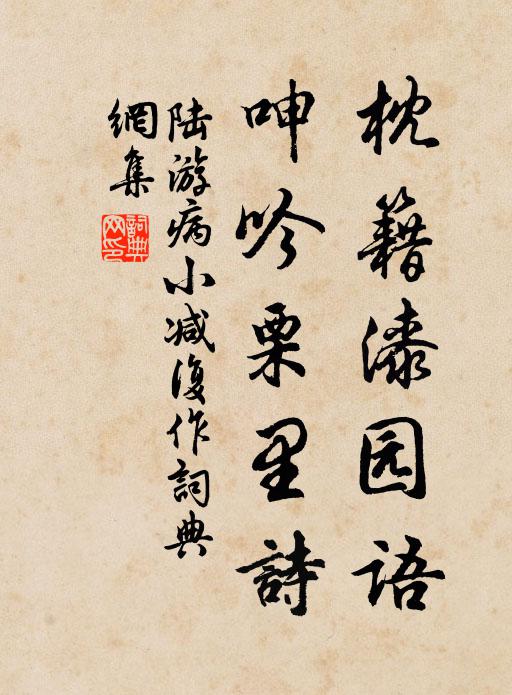 枕籍漆园语
呻吟栗里詩
陆游病小减復作詞典
網集
詞典
网印